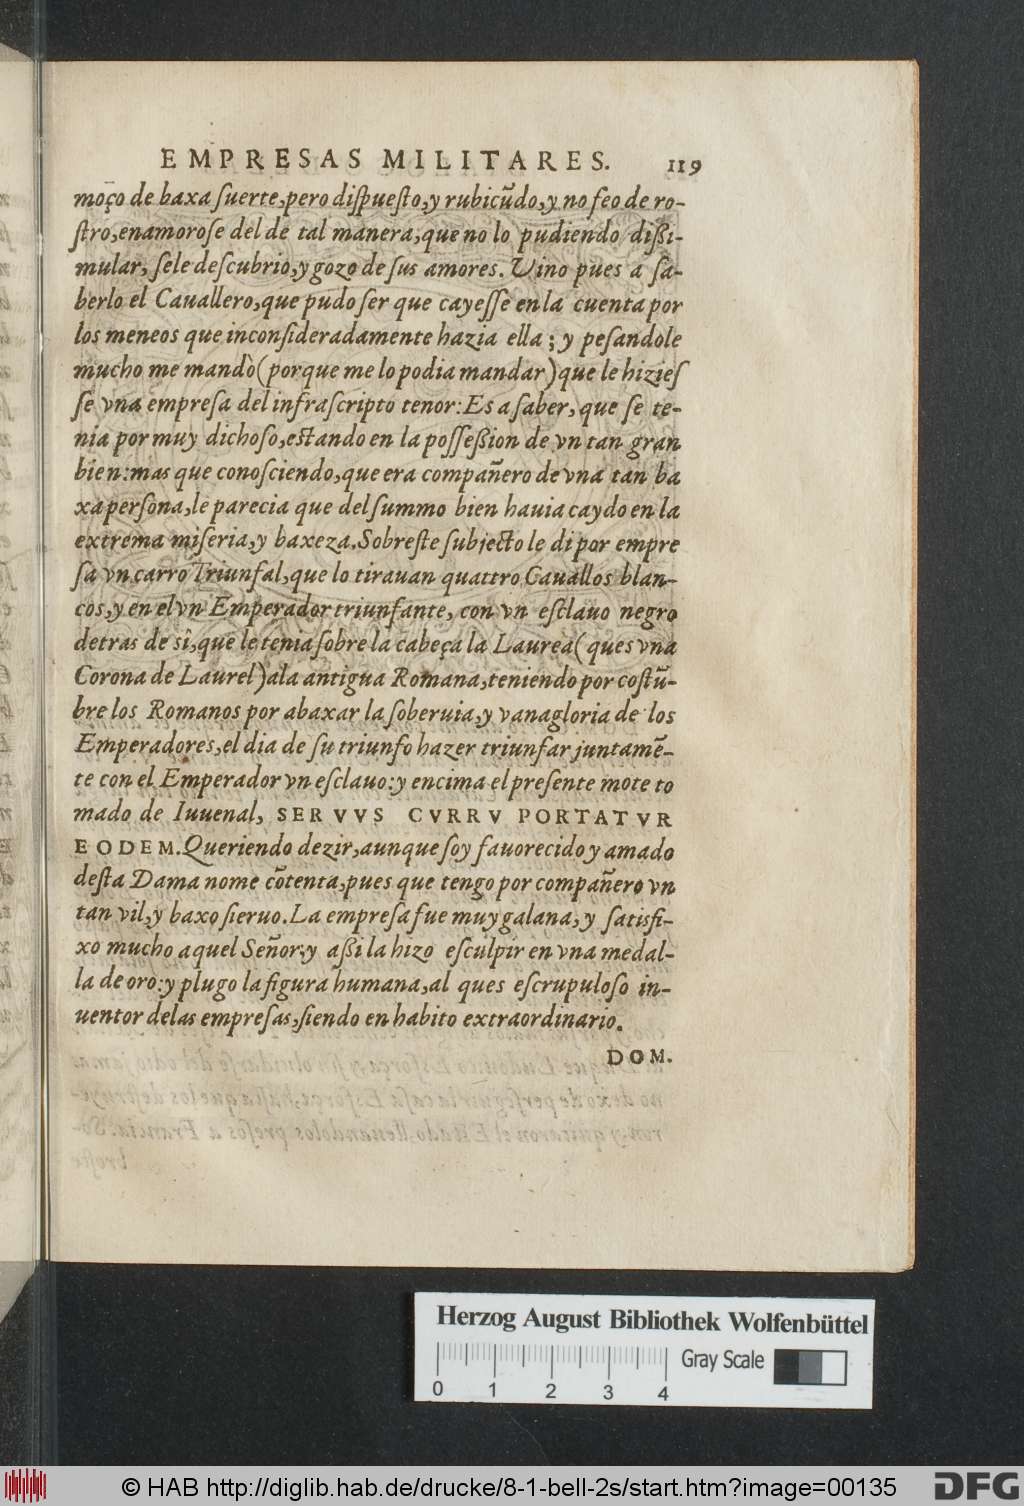 EMPRESAS MILITARES. 119
mõço de baxa ſuerte,pero diſpueſto,y rubicũdo,y no feo de ro-
ſtro,enamoroſe del de tal manera,que no lo pudiendo dißi-
mular, ſele deſcubrio,y gozo de ſus amores. Vino pues a ſa-
berlo el Cauallero,que pudo ſer que cayeſſe en la cuenta por
los meneos que inconſideradamente hazia ella ; y peſandole
mucho me mandò(porque me lo podia mandar)que le hizieſ
ſe vna empreſa del infraſcripto tenor:Es a ſaber, que ſe te-
nia por muy dichoſo,eſtando en la poſſeßion de vn tan gran
bien:mas que conoſciendo,que era compañero de vna tan ba
xa perſona,le parecia que del ſummo bien hauia caydo en la
extrema miſeria,y baxeza.Sobreſte ſubiecto le di por empre
ſa vn carro Triunfal,que lo tirauan quattro Cauallos blan-
cos,y en el vn Emperador triunfante, con vn eſclauo negro
detras de sì,que le tenia ſobre la cabeça la Laurea( ques vna
Corona de Laurel)ala antigua Romana,teniendo por coſtũ-
bre los Romanos por abaxar la ſoberuia,y vanagloria de los
Emperadores,el dia de ſu triunfo hazer triunfar juntamẽ-
te con el Emperador vn eſclauo:y encima el preſente mote to
mado de Iuuenal, SERVVS CVRRV PORTATVR
EODEM.Queriendo dezir,aunque ſoy fauorecido y amado
deſta Dama nome cõtenta,pues que tengo por compañero vn
tan vil,y baxo ſieruo.La empreſa fue muy galana,y ſatisfi-
xo mucho aquel Señor:y aßi la hizo eſculpir en vna medal-
la de oro:y plugo la figura humana,al ques eſcrupuloſo in-
uentor delas empreſas,ſiendo en habito extraordinario.
DOM.
Herzog August Bibliothek Wolfenbüttel
Gray Scale
0 1 2 3 4
© HAB http://diglib.hab.de/drucke/8-1-bell-2s/start.htm?image=00135
DFG